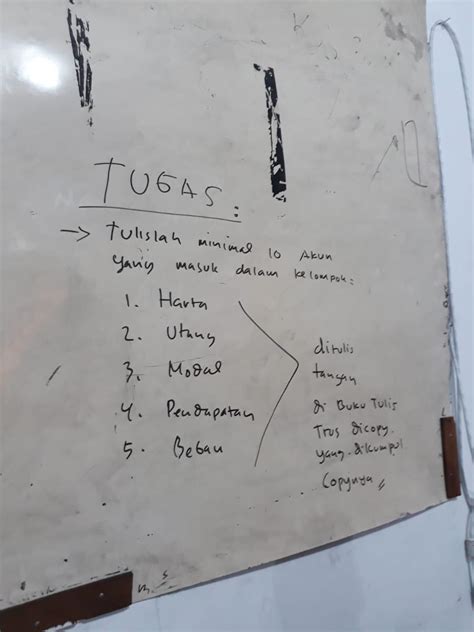 TUGAS :
→ Tulislah minimal 10 Akun
yang masuk dalam kelompok :
1. Harta
2. Utang
3. Modal
4. Pendapatan
5. Beban
ditulis
tangan
di Buku Tulis
Trus dicopy.
yang dikumpul
Copynya